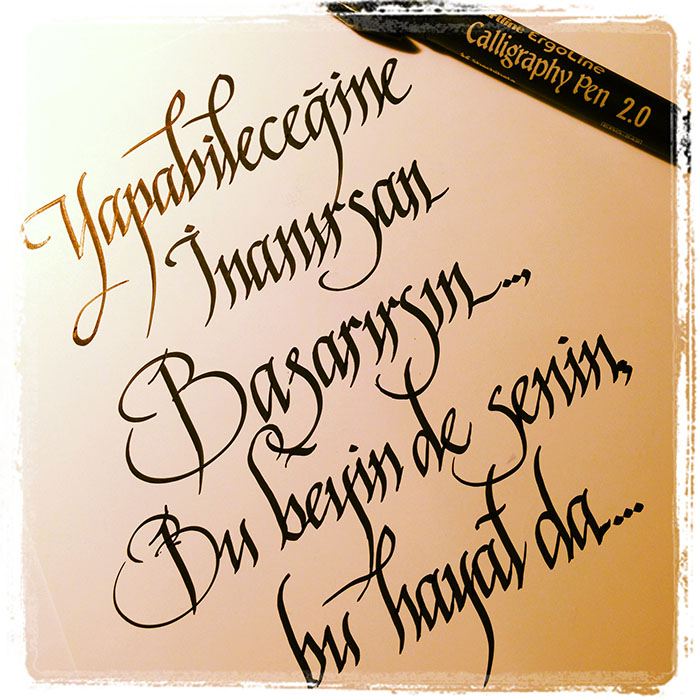 ErgoLine
Calligraphy Pen 2.0
Yapabileceğine
İnanırsan
Başarırsın...,
Bu beyin de senin,
bu hayat da...